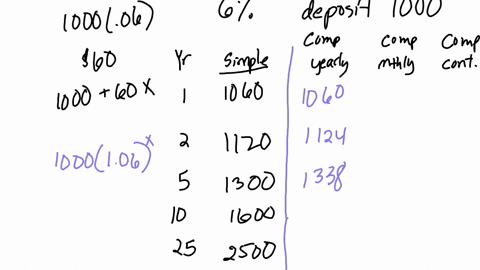 1000(.06) 6% deposit 1000
$60 Yr Simple Comp yearly Comp mthly Comp cont.
1000 + 60x 1 1060 1060
2 1120 1124
1000(1.06)^x
5 1300 1338
10 1600
25 2500